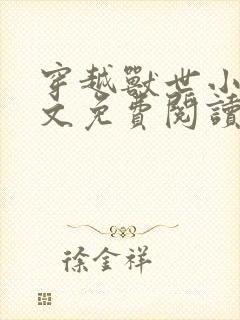 穿越獸世小
文免費閱讀
徐金祥